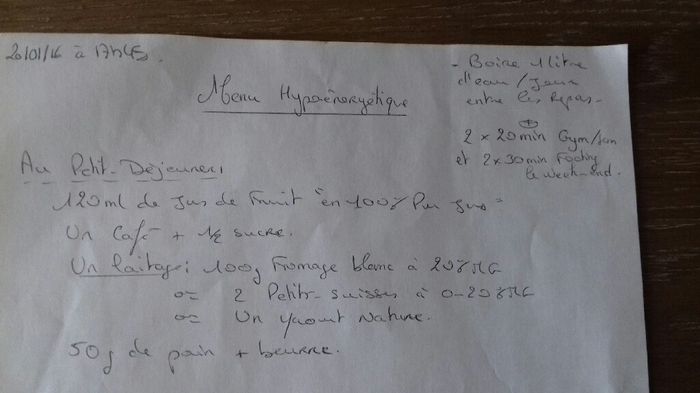 20/01/16 à 17h45.
- Boire 1 litre
d'eau / Jour
entre les Repas.
+
2 x 20min Gym/sem
et 2x30min Footing
le week-end.
Menu Hypoénergétique
Au Petit-Déjeuner:
120ml de Jus de Fruit "en 100% Pur Jus"
Un Café + 1/2 sucre.
Un laitage: 100g Fromage blanc à 20% MG
ou 2 Petits-suisses à 0-20% MG
ou Un yaourt Nature.
50g de pain + beurre.